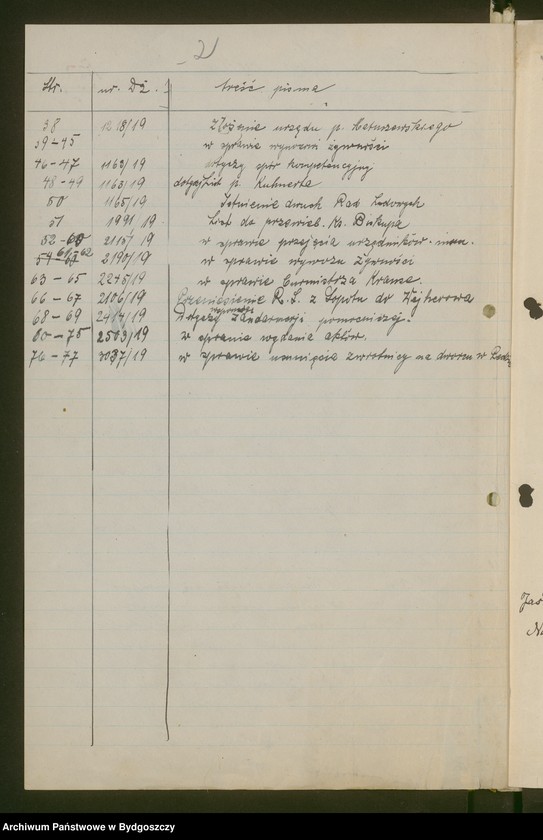 2
Str. nr. Dż. treść pisma
38 1218/19 Złożenie urzędu p.
39-45 w sprawie wywozu żywności
46-47 1162/19 dotyczy spór kompetencyjny
48-49 1163/19 p. Kuhnerta
50 1165/19 Istnienie dwuch Rad Ludowych
51 1991/19 List do przewiel. Ks. Biskupa
52-60 2115/19 w sprawie przejęcia urzędników
61-62 2190/19 w sprawie wywozu żywności
63-65 2245/19 w sprawie burmistrza Krause.
66-67 2106/19 Przeniesienie R. L. z Sopotu do Wejherowa
68-69 2414/19 Dotyczy żandarmerji pomocniczej.
70-75 2503/19 w sprawie wydania aktów.
76-77 3037/19 w sprawie usunięcia zwrotnicy na dworcu w
Archiwum Państwowe w Bydgoszczy